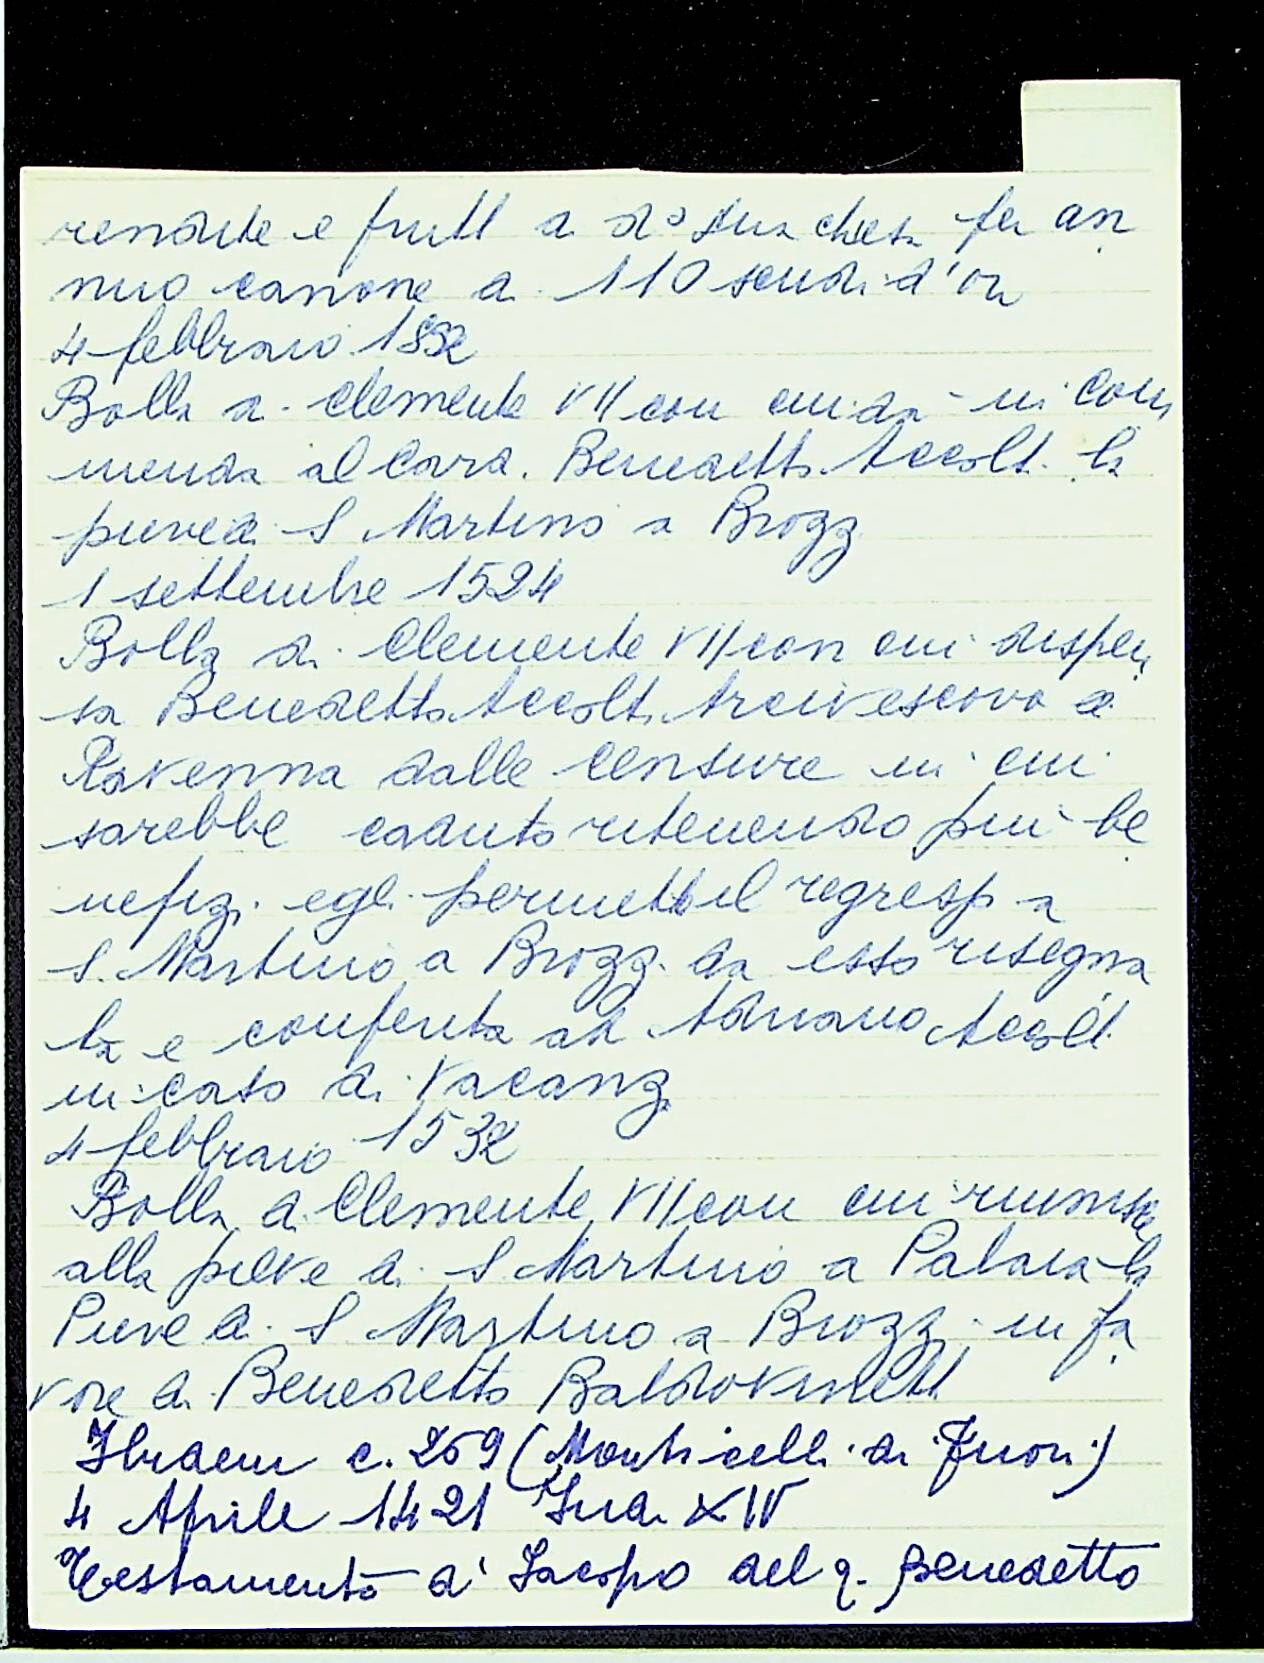 rendite e frutti a da sua chiesa per an
nuo canone di 110 scudi d'oro
4 febbraio 1532
Bolla di Clemente VII con cui da in com
menda al Card. Benedetto Accolti la
pieve di S Martino a Brozzi
1 settembre 1524
Bolla di Clemente VII con cui dispen
sa Benedetto Accolti Arcivescovo di
Ravenna dalle censure in cui
sarebbe caduto ritenendo più be
nefizi. egli permette il regresso a
S. Martino a Brozzi da esso risegna
ta e conferita ad Adriano Accolti
in caso di vacanza
4 febbraio 1532
Bolla di Clemente VII con cui riunisce
alla pieve di S Martino a Palaia la
Pieve di S Martino a Brozzi in fa
vore di Benedetto Baldovinetti
Ibidem c. 259 (Monticelli di Fuori)
4 Aprile 1421 Ind. XIV
Testamento di Jacopo del q. Benedetto